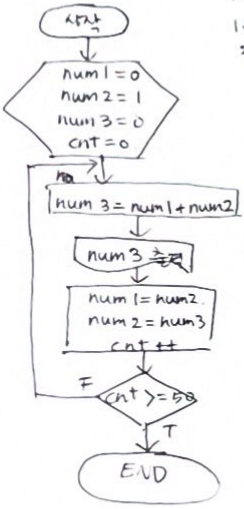 시작
num1=0
num2=1
num3=0
cnt=0
no
num3=num1+num2
num3 출력
num1=num2.
num2=num3
cnt++
F
cnt>=50
T
END